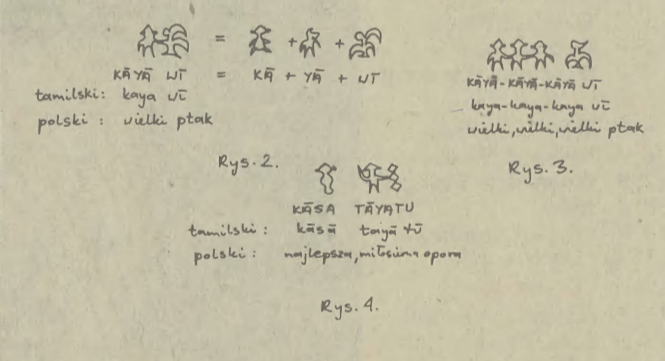 = + +
KĀYĀ WĪ = KĀ + YĀ + WĪ
tamilski: kaya vī
polski: wielki ptak
Rys. 2.
KĀYĀ-KĀYĀ-KĀYĀ WĪ
kaya-kaya-kaya vī
wielki, wielki, wielki ptak
Rys. 3.
KĀSA TĀYATU
tamilski: kāsā tayā tū
polski: najlepsza, miłosna opora
Rys. 4.